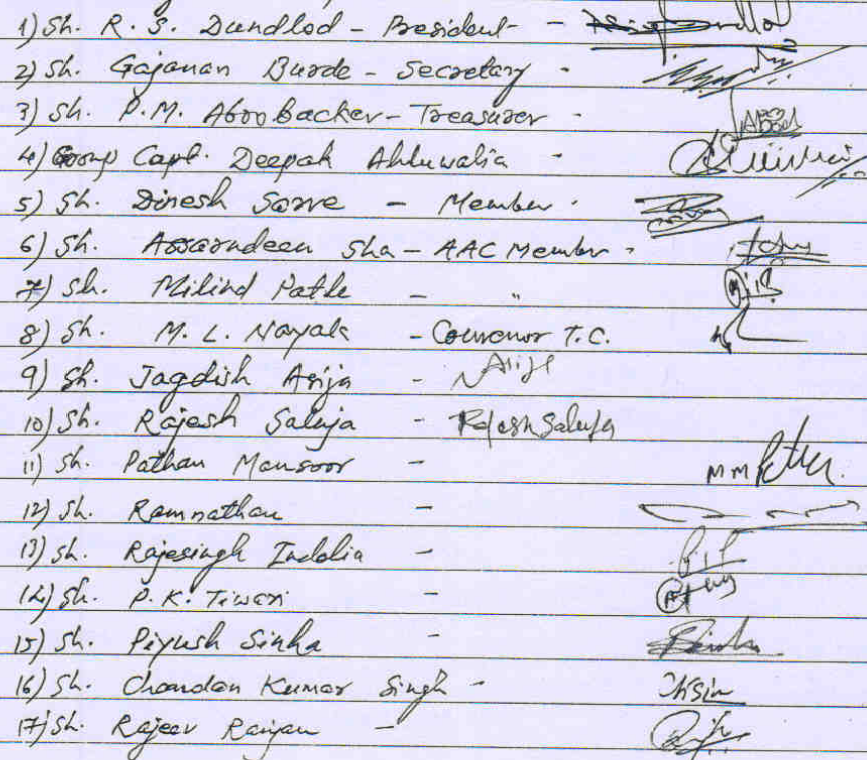 1) Sh. R. S. Dundlod - President -
2) Sh. Gajanan Burde - Secretary -
3) Sh. P.M. Aboobacker - Treasurer -
4) Group Capt. Deepak Ahluwalia -
5) Sh. Dinesh Sarve - Member -
6) Sh. Assarudeen Sha - AAC Member -
7) Sh. Milind Patle - "
8) Sh. M. L. Nayak - Convenor T.C.
9) Sh. Jagdish Arija -
10) Sh. Rajesh Saluja - Rajesh Saluja
11) Sh. Pathan Mansoor -
12) Sh. Ramnathan -
13) Sh. Rajesingh Indolia -
14) Sh. P.K. Tiwari -
15) Sh. Piyush Sinha -
16) Sh. Chandan Kumar Singh -
17) Sh. Rajeev Ranjan -